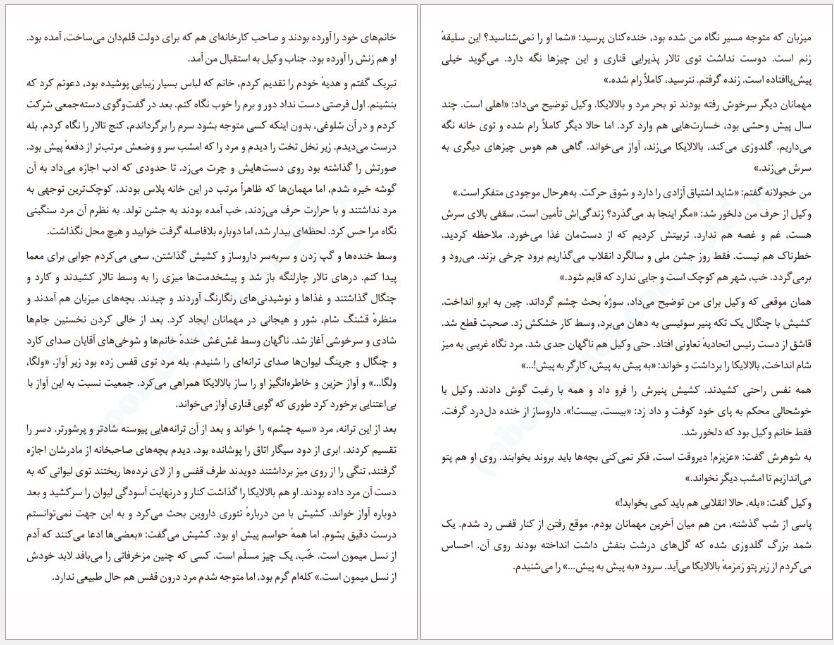 خانم‌های خود را آورده بودند و صاحب کارخانه‌ای هم که برای دولت قلم‌دان می‌ساخت، آمده بود.
او هم زنش را آورده بود. جناب وکیل به استقبال من آمد.
تبریک گفتم و هدیهٔ خودم را تقدیم کردم، خانم که لباس بسیار زیبایی پوشیده بود، دعوتم کرد که
بنشینم. اول فرصتی دست نداد دور و برم را خوب نگاه کنم. بعد در گفت‌وگوی دسته‌جمعی شرکت
کردم و در آن شلوغی، بدون اینکه کسی متوجه بشود سرم را برگرداندم، کنج تالار را نگاه کردم. بله
درست می‌دیدم. زیر نخل تخت را دیدم و مرد را که امشب سر و وضعش مرتب‌تر از دفعهٔ پیش بود.
صورتش را گذاشته بود روی دست‌هایش و چرت می‌زد، تا حدودی که ادب اجازه می‌داد به آن
گوشه خیره شدم، اما مهمان‌ها که ظاهراً مرتب در این خانه پلاس بودند، کوچک‌ترین توجهی به
مرد نداشتند و با حرارت حرف می‌زدند، خب آمده بودند به جشن تولد. به نظرم آن مرد سنگینی
نگاه مرا حس کرد. لحظه‌ای بیدار شد، اما دوباره بلافاصله گرفت خوابید و هیچ محل نگذاشت.
وسط خنده‌ها و گپ زدن و سربه‌سر داروساز و کشیش گذاشتن، سعی می‌کردم جوابی برای معما
پیدا کنم. درهای تالار چارلنگه باز شد و پیشخدمت‌ها میزی را به وسط تالار کشیدند و کارد و
چنگال گذاشتند و غذاها و نوشیدنی‌های رنگارنگ آوردند و چیدند. بچه‌های میزبان هم آمدند و
منظرهٔ قشنگ شام، شور و هیجانی در مهمانان ایجاد کرد. بعد از خالی کردن نخستین جام‌ها
شادی و سرخوشی آغاز شد. ناگهان وسط غش‌غش خندهٔ خانم‌ها و شوخی‌های آقایان صدای کارد
و چنگال و جرینگ لیوان‌ها صدای ترانه‌ای را شنیدم. بله مرد توی قفس زده بود زیر آواز. «ولگا،
ولگا...» و آواز حزین و خاطره‌انگیز او را ساز بالالایکا همراهی می‌کرد. جمعیت نسبت به این آواز با
بی‌اعتنایی برخورد کرد طوری که گویی قناری آواز می‌خواند.
بعد از این ترانه، مرد «سیه چشم» را خواند و بعد از آن ترانه‌هایی پیوسته شادتر و پرشورتر. دسر را
تقسیم کردند. ابری از دود سیگار اتاق را پوشانده بود، دیدم بچه‌های صاحبخانه از مادرشان اجازه
گرفتند، تنگی را از روی میز برداشتند دویدند طرف قفس و از لای نرده‌ها ریختند توی لیوانی که به
دست آن مرد داده بودند. او هم بالالایکا را گذاشت کنار و درنهایت آسودگی لیوان را سرکشید و بعد
دوباره آواز خواند. کشیش با من دربارهٔ تئوری داروین بحث می‌کرد و به این جهت نمی‌توانستم
درست دقیق بشوم. اما همهٔ حواسم پیش او بود. کشیش می‌گفت: «بعضی‌ها ادعا می‌کنند که آدم
از نسل میمون است. خُب، یک چیز مسلّم است. کسی که چنین مزخرفاتی را می‌بافد لابد خودش
از نسل میمون است.» کله‌ام گرم بود، اما متوجه شدم مرد درون قفس هم حال طبیعی ندارد.
میزبان که متوجه مسیر نگاه من شده بود، خنده‌کنان پرسید: «شما او را نمی‌شناسید؟ این سلیقهٔ
زنم است. دوست نداشت توی تالار پذیرایی قناری و این چیزها نگه دارد. می‌گوید خیلی
پیش‌پاافتاده است. زنده گرفتم. نترسید، کاملاً رام شده.»
مهمانان دیگر سرخوش رفته بودند تو بحر مرد و بالالایکا. وکیل توضیح می‌داد: «اهلی است. چند
سال پیش وحشی بود، خسارت‌هایی هم وارد کرد. اما حالا دیگر کاملاً رام شده و توی خانه نگه
می‌داریم. گلدوزی می‌کند، بالالایکا می‌زند، آواز می‌خواند. گاهی هم هوس چیزهای دیگری به
سرش می‌زند.»
من خجولانه گفتم: «شاید اشتیاق آزادی را دارد و شوق حرکت. به‌هرحال موجودی متفکر است.»
وکیل از حرف من دلخور شد: «مگر اینجا بد می‌گذرد؟ زندگی‌اش تأمین است، سقفی بالای سرش
هست، غم و غصه هم ندارد. تربیتش کردیم که از دست‌مان غذا می‌خورد. ملاحظه کردید،
خطرناک هم نیست. فقط روز جشن ملی و سالگرد انقلاب می‌گذاریم برود چرخی بزند. می‌رود و
برمی‌گردد. خب، شهر هم کوچک است و جایی ندارد که قایم شود.»
همان موقعی که وکیل برای من توضیح می‌داد، سوژهٔ بحث چشم گرداند. چین به ابرو انداخت.
کشیش با چنگال یک تکه پنیر سوئیسی به دهان می‌برد، وسط کار خشکش زد. صحبت قطع شد.
قاشق از دست رئیس اتحادیهٔ تعاونی افتاد. حتی وکیل هم ناگهان جدی شد. مرد نگاه غریبی به میز
شام انداخت، بالالایکا را برداشت و خواند: «به پیش به پیش، کارگر به پیش!...»
همه نفس راحتی کشیدند. کشیش پنیرش را فرو داد و همه با رغبت گوش دادند. وکیل با
خوشحالی محکم به پای خود کوفت و داد زد: «بیست، بیست!». داروساز از خنده دل‌درد گرفت.
فقط خانم وکیل بود که دلخور شد.
به شوهرش گفت: «عزیزم! دیروقت است، فکر نمی‌کنی بچه‌ها باید بروند بخوابند. روی او هم پتو
می‌اندازیم تا امشب دیگر نخواند.»
وکیل گفت: «بله، حالا انقلابی هم باید کمی بخوابد!»
پاسی از شب گذشته، من هم میان آخرین مهمانان بودم. موقع رفتن از کنار قفس رد شدم. یک
شمد بزرگ گلدوزی شده که گل‌های درشت بنفش داشت انداخته بودند روی آن. احساس
می‌کردم از زیر پتو زمزمهٔ بالالایکا می‌آید. سرود «به پیش به پیش...» را می‌شنیدم.